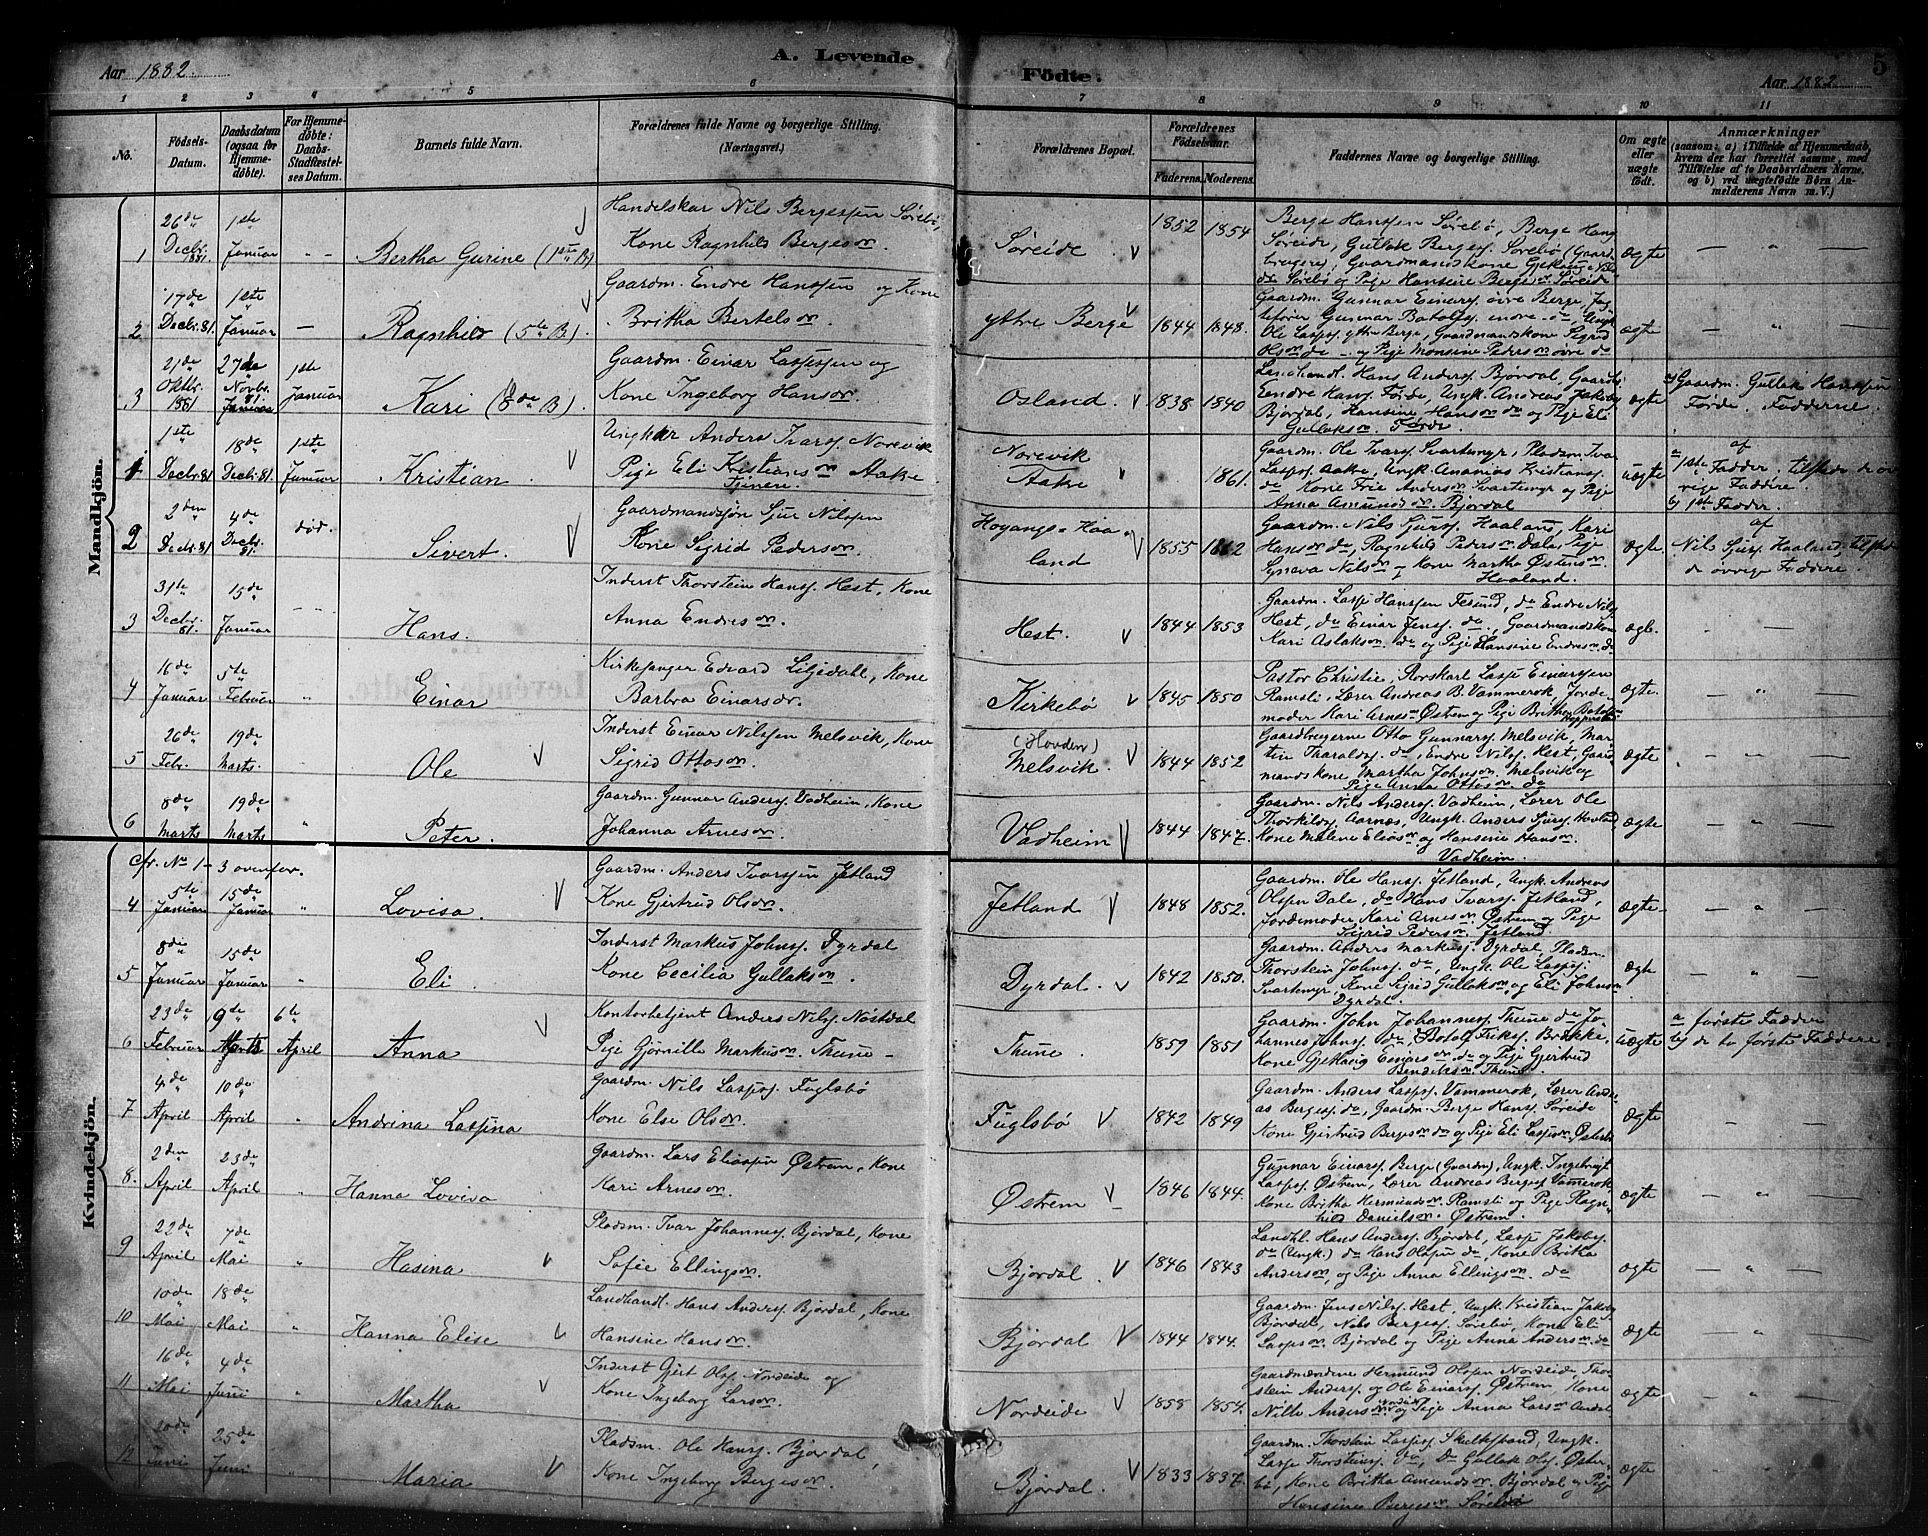 Aar 1882
A. Levende
Födte.
Aar 1882
5
1 2 3 4 5 6 7 8 9 10 11
No.
Födsels-
Datum.
Daabsdatum
(ogsaa for
Hjemme-
döbte).
For Hjemme-
döbte:
Daabs-
Stadfæstel-
ses Datum.
Barnets fulde Navn.
Forældrenes fulde Navne og borgerlige Stilling.
(Næringsvei.)
Forældrenes Bopæl.
Forældrenes
Födselsaar.
Faderens. Moderens.
Faddernes Navne og borgerlige Stilling.
Om ægte
eller
uægte
födt.
Anmærkninger
(saasom: a) i Tilfælde af Hjemmedaab,
hvem der har forrettet samme, med
Tilföielse af to Daabsvidners Navne,
og b) ved uægtefödte Börn An-
melderens Navn m. V.)
Mandkjön.
1 26de Decbr. 1881. 1ste Januar Bertha Gurine (1ste B)
Handelskar Nils Bergessen Sörebö,
Kone Ragnhild Bergesdr.
Söreide 1852 1854
Berge Hanssen Sörebö, Berge Hans
Söreide, Gullak Berges. Sörebö (Gaard-
ægte
2 17de Decbr. 81. 1ste Januar Ragnhild (5te B).
Gaardm. Endre Hanssen og Kone
Britha Bertelsdr.
ytre Berge 1844 1848.
Gaardm. Gunnar Einars. övre Berge,
ægte
3 21de Oktbr. 1881 27de Novbr. 81. Januar 1ste Januar Kari (8de B).
Gaardm. Einar Lassesen og
Kone Ingeborg Hansdr.
Osland. 1838 1840
Landhandl. Hans Anders. Bjordal, Gaardb.
Endre Hans. Förde, Ungk. Andreas Jakobs.
Bjordal, Hansine Hansdr. do og Pige Eli
Gullaksdr. Förde.
ægte
a) Gaardm. Gullak Hanssen
Förde. Fadderne.
1 1ste Decbr. 81 18de Decbr. 81. 1ste Januar Kristian
Ungkar Anders Ivars. Norevik
Pige Eli Kristiansdr. Aake
Tjener.
Norevik
Aake 1861.
Gaardm. Ole Ivars. Svartemyr, Pladsm. Ivar
Lasses. Aake, Ungk. Ananias Kristians.
do Kone Frie Andersdr. Svartemyr og Pige
Anna Amundsdr. Bjordal
uægte
a) af
1ste Fadder. tilstede de öv
rige Faddere.
b) 1ste Fadder.
2 2den Decbr. 81 4de Decbr. 81. död. Sivert.
Gaardmandssön Sjur Nilssen
Kone Sigrid Pedersdr.
Höyangs-Haa-
land 1855 1862
Gaardm. Nils Sjurs. Haaland, Kari
Hansdr. do, Ragnhild Pedersdr. Dale, Pige
Synava Nilsdr. og Kone Martha Östensdr.
Haaland.
ægte.
af
Nils Sjurs. Haaland. tilstede
de övrige Faddere.
3 31te Decbr. 81. 15de Januar Hans.
Inderst Thorstein Hans. Hest, Kone
Anna Endresdr.
Hest. 1844 1853
Gaardm. Lasse Hanssen Tesund, do Endre Nils.
Hest, do Einar Jens. do, Gaardmandskone
Kari Aslaksdr. do og Pige Hansine Endresdr. do
ægte.
4 16de Januar 5te Februar Einar
Kirkesanger Edvard Liljedahl, Kone
Barbra Einarsdr.
Kirkebö 1845 1850
Pastor Christie, Rorskarl Lasse Einarssen
Ramsli, Lærer Andreas B. Vammerok, Jorde-
moder Kari Arnesdr. Östrem og Pige Britha
ægte.
5 26de Febr. 19de Marts. Ole
Inderst Einar Nilssen Melsvik, Kone
Sigrid Ottosdr.
(Hovden)
Melsvik. 1844 1852
Gaardbrugerne Otto Gunnars. Melsvik, Mar-
tin Tharalds. do, Endre Nils. Hest, Gaard-
mandskone Martha Johnsdr. Melsvik og
Pige Anna Ottosdr. do
ægte
6 8de Marts 19de Marts Peter.
Gaardm. Gunnar Anders. Vadheim, Kone
Johanna Arnesdr.
Vadheim 1844 1847.
Gaardm. Nils Anders. Vadheim, Lærer Ole
Thorkilds. Aarnes, Ungk. Anders Sjurs. Hovland,
Kone Malene Eliasdr. og Hansine Hansdr.
Vadheim.
ægte
Kvindekjön.
cfr. No 1-3 ovenfor.
4 5te Januar 15de Januar Lovisa.
Gaardm. Anders Ivarssen Jetland
Kone Gjertrud Olsdr.
Jetland 1848 1852.
Gaardm. Ole Hans. Jetland, Ungk. Andreas
Olssen Dale, do Hans Ivars. Jetland,
Jordemoder Kari Arnesdr. Östrem og Pige
Sigrid Pedersdr. Jetland.
ægte
5 8de Januar 15de Januar Eli
Inderst Markus Johns. Dyrdal
Kone Cecilia Gullaksdr.
Dyrdal. 1842 1850.
Gaardm. Anders Markus. Dyrdal, Pladsm.
Thorstein Johns. do, Ungk. Ole Lasses.
Svartemyr, Kone Sigrid Gullaksdr. og Eli Johnsdr.
Dyrdal.
ægte
6 23de Februar 9de Marts 6te April Anna
Kontorbetjent Anders Nils. Nöstdal
Pige Gjörnille Markusdr. Thune
Thune. 1859 1851
Gaardm. John Johannes. Thune do Jo-
hannes Johns. do, Botolf Eriks. Brække,
Kone Gjethaug Einarsdr. do og Pige Gjertrud
Bendiksdr. Thune.
uægte
a förste Fadder
b) de to förste Faddere.
7 4de April 10de April Andrina Lassina
Gaardm. Nils Lasses. Fuglsbö
Kone Else Olsdr.
Fuglsbö 1842 1849
Gaardm. Anders Lasses. Vammerok, Lærer Andre-
as Berges. do, Gaardm. Berge Hans. Söreide
Kone Gjertrud Bergesdr. do og Pige Eli Lassesdr. Österbö
ægte
8. 2den April 23de April Hanna Lovisa
Gaardm. Lars Eliassen Östrem, Kone
Kari Arnesdr.
Östrem 1846 1844.
Gunnar Einars. Berge (Gaardm), Ungk. Ingebrigt
Lasses. Östrem, Lærer Andreas Berges. Vamerok,
Kone Britha Hermundsdr. Ramsli og Pige Ragn-
hild Danielsdr. Östrem.
ægte
9 22de April 7de Mai Hasina
Pladsm. Ivar Johannes. Bjordal, Kone
Sofie Ellingsdr.
Bjordal. 1846 1843
Landhl. Hans Anders. Bjordal, Lasse Jakobs.
do (Ungk.) do Hans Olssen do, Kone Britha
Andersdr., og Pige Anna Ellingsdr. do
ægte
10 10de Mai 18de Mai Hanna Elise
Landhandl. Hans Anders. Bjordal, Kone
Hansine Hansdr.
Bjordal 1844 1844.
Gaardm. Jens Nils. Hest, Ungk. Kristian Jakobs.
Bjordal, Nils Berges. Sörebö, Kone Eli
Lassesdr. Bjordal og Pige Anna Andersdr. do
ægte
11 16de Mai 4de Juni Martha
Inderst Gjert Ols. Nordeide og
Kone Ingeborg Larsdr.
Nordeide 1858 1854.
Gaardmændene Hermund Olssen Nordeide, Tho-
stein Anders. og Ole Einars. Östrem, Kone
Nille Andersdr. Nordeide og Pige Anna Larsdr.
ægte
12 20de Juni 25de Juni Maria
Pladsm. Ole Hans. Bjordal,
Kone Ingeborg Bergesdr.
Bjordal. 1833 1837.
Gaardm. Thorstein Lasses. Ungk.
Lasse Thorsteins. do, do Gullak Ols. Öster-
bö, Kone Britha Amundsdr. Bjordal og Pige
Hansine Bergesdr. Sörebö
ægte